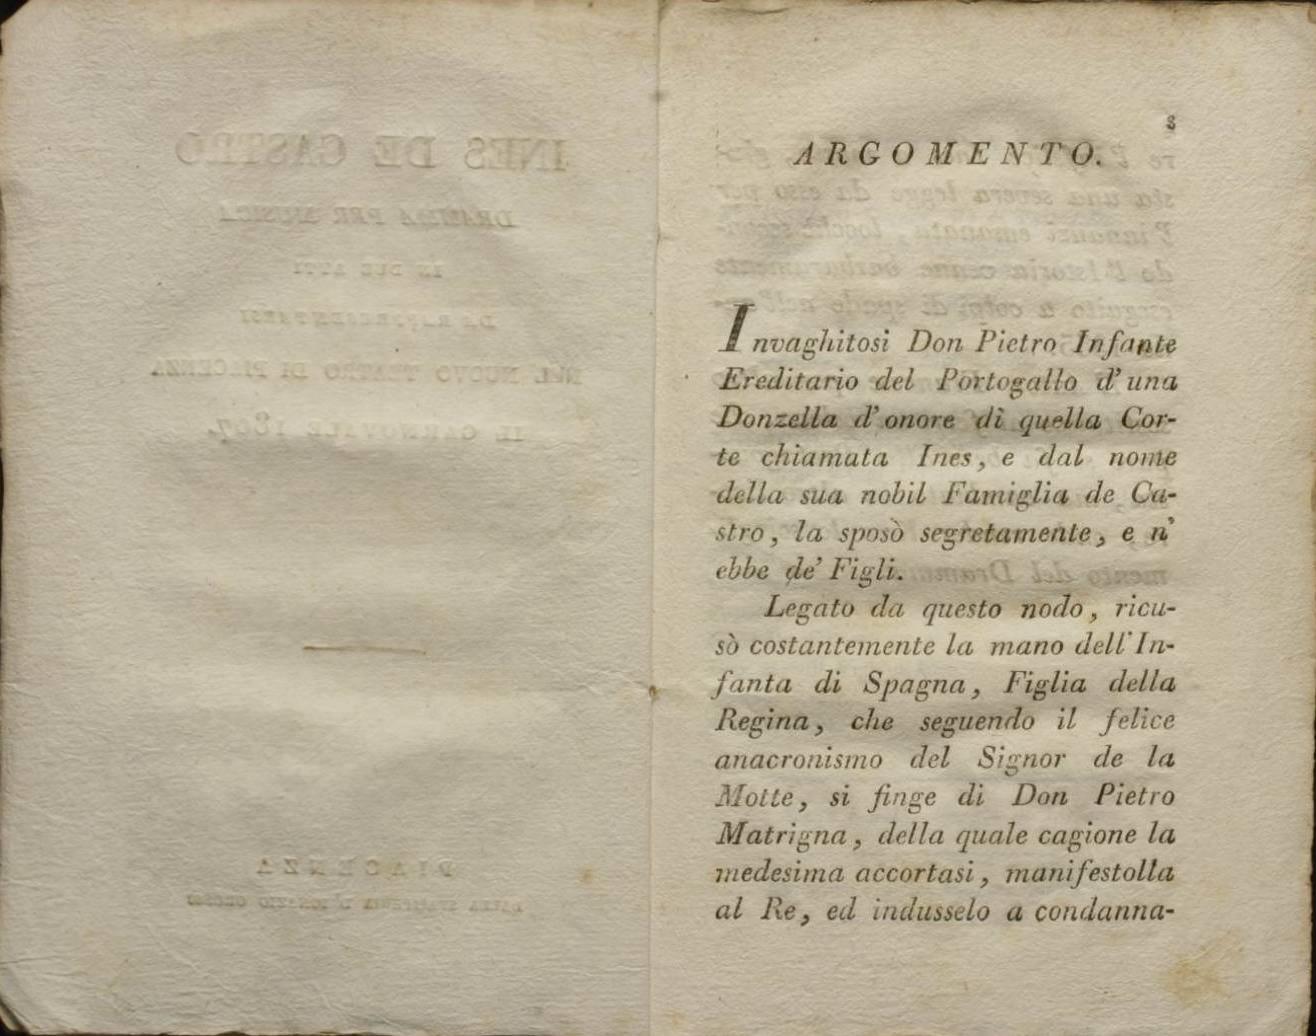 3
ARGOMENTO.
Invaghitosi Don Pietro Infante
Ereditario del Portogallo d'una
Donzella d'onore di quella Cor-
te chiamata Ines, e dal nome
della sua nobil Famiglia de Ca-
stro, la sposò segretamente, e n'
ebbe de' Figli.
Legato da questo nodo, ricu-
sò costantemente la mano dell'In-
fanta di Spagna, Figlia della
Regina, che seguendo il felice
anacronismo del Signor de la
Motte, si finge di Don Pietro
Matrigna, della quale cagione la
medesima accortasi, manifestolla
al Re, ed indusselo a condanna-